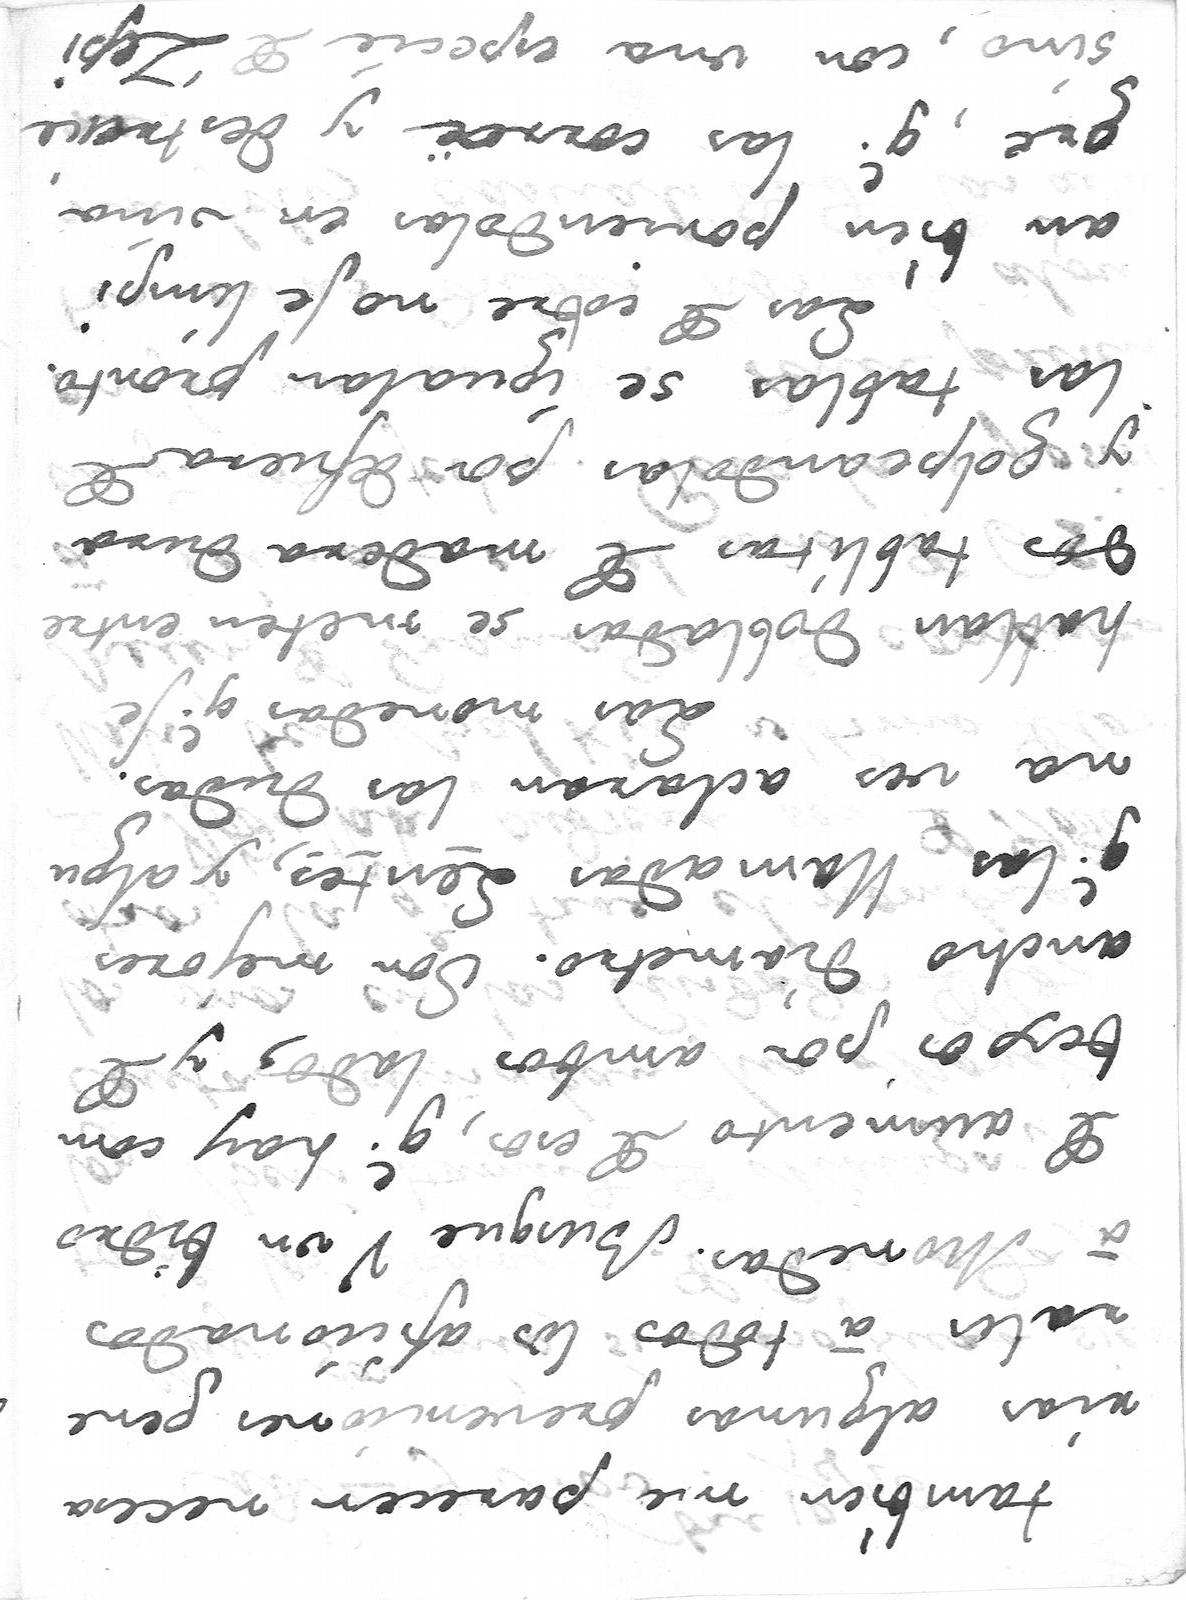 tambien me parecen necesa
rias algunas prevenciones gene
rales ā todos los aficionados
ā Monedas. Busque V un bidro
de aumento de esos, q.e hay com
bexos por ambos lados, y de
ancho diametro. Son mejores
q.e las llamadas Lentes, y algu
na ves aclaran las dudas.
Las monedas q.e se
hallan dobladas se meten entre
dos tablitas de madera dura
y golpeandolas por defuera de
las tablas se igualan pronto.
Las de cobre no se limpi
an bien poniendolas en vina
gre, q.e las corroe y destruie,
sino, con una especie de Zepi